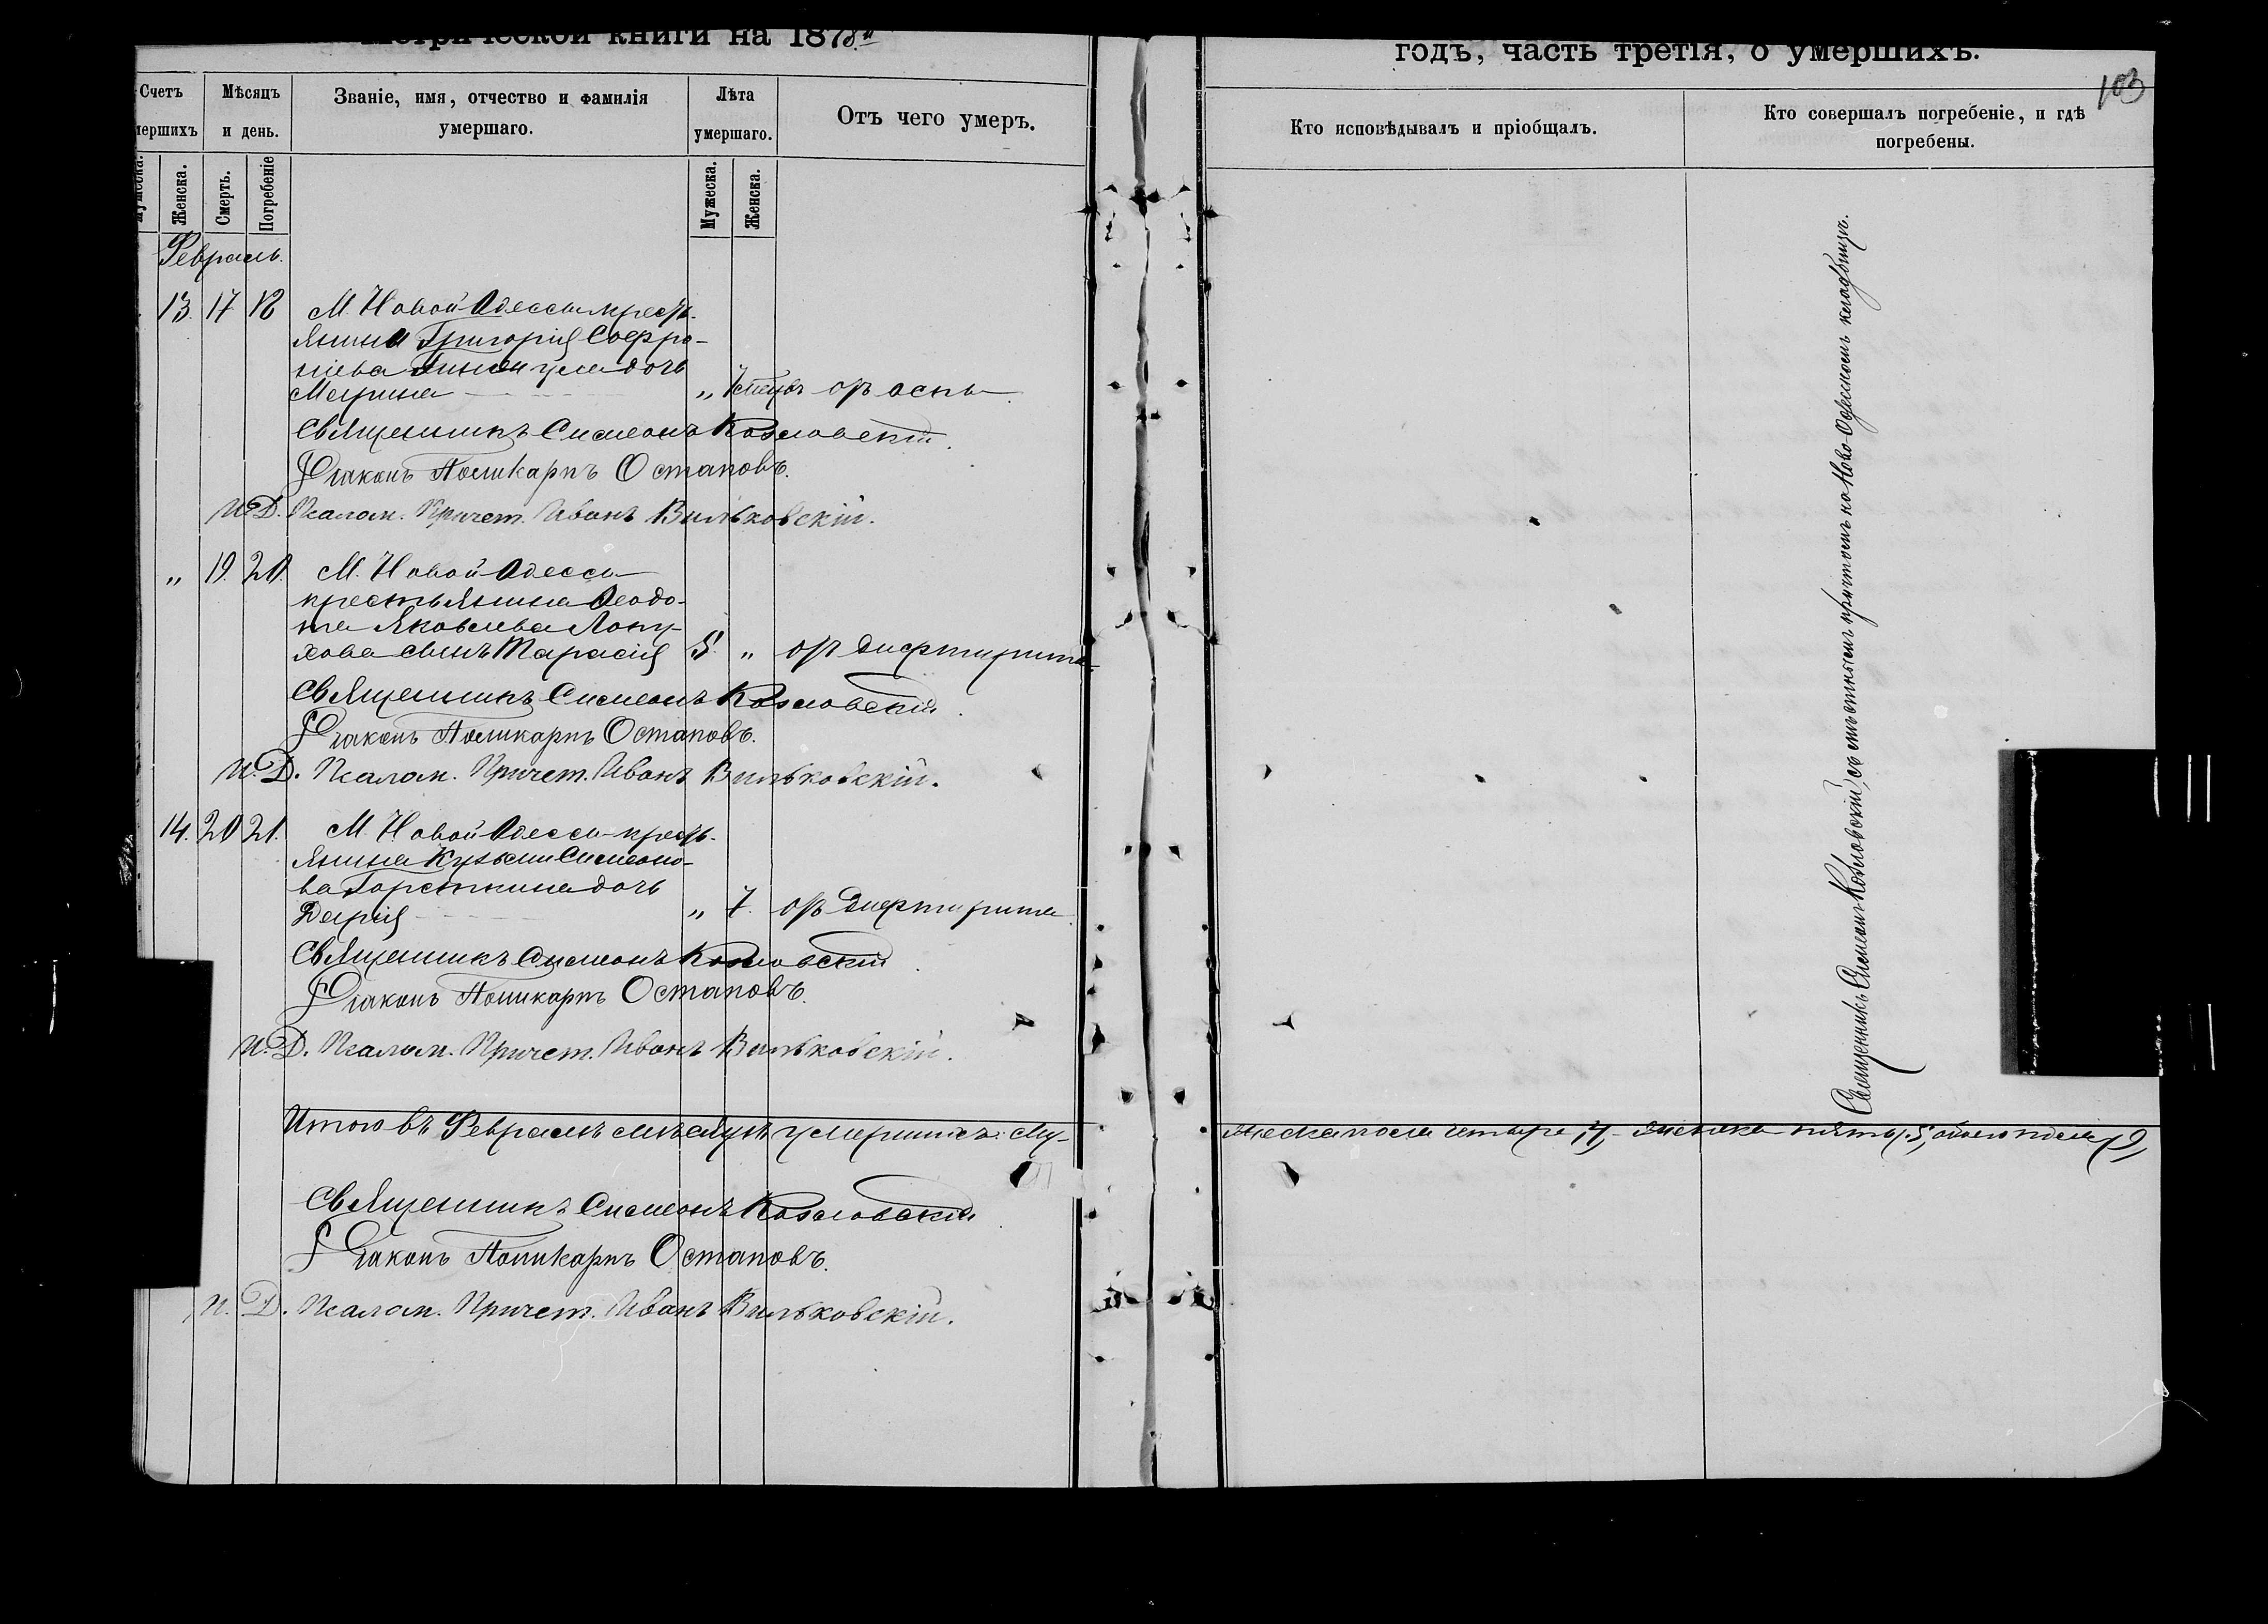 Метрической книги на 1878й
годъ, часть третія, о умершихъ.
103
Счетъ умершихъ
Мѣсяцъ и день.
Званіе, имя, отчество и фамилія умершаго.
Лѣта умершаго.
Отъ чего умеръ.
Кто исповѣдывалъ и пріобщалъ.
Кто совершалъ погребеніе, и гдѣ погребены.
Мужеска.
Женска.
Смерть.
Погребеніе
Мужеска.
Женска.
Февраль.
13. 17 18 М. Новой Одессы крест-
янина Григорія Софро-
ніева дочь
Марина " 7 отъ оспы.
Священникъ Симеонъ Козловскій.
Діаконъ Поликарпъ Остаповъ.
И. Д. Псалом. Причет. Иванъ Вильковскій.
" 19. 20. М. Новой Одессы
крестьянина Ѳеодо-
та Яковлева Лопу-
хова сынъ Тарасій 5. " отъ дифтирита
Священникъ Симеонъ Козловскій.
Діаконъ Поликарпъ Остаповъ.
И. Д. Псалом. Причет. Иванъ Вильковскій.
14. 20 21. М. Новой Одессы крест-
янина Кузьмы Симеоно-
ва Горсткина дочь
Дарія " 7. отъ дифтирита
Священникъ Симеонъ Козловскій.
Діаконъ Поликарпъ Остаповъ.
И. Д. Псалом. Причет. Иванъ Вильковскій.
Итого въ Февралѣ мѣсяцѣ умершихъ: Му-
жеска пола четыре, 4, женска пять, 5, обоего пола 9,
Священникъ Симеонъ Козловскій.
Діаконъ Поликарпъ Остаповъ.
И. Д. Псалом. Причет. Иванъ Вильковскій.
Священникъ Симеонъ Козловскій, съ причтомъ на Ново-Одесскомъ кладбищѣ.